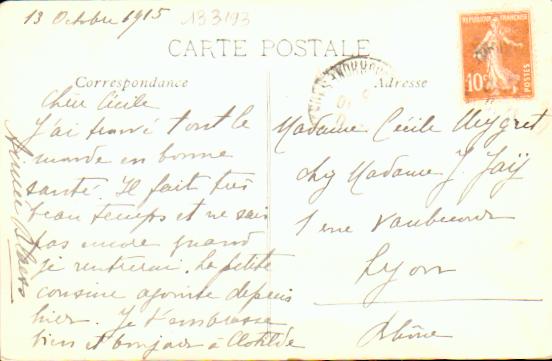 13 Octobre 1915
133193
CARTE POSTALE
Correspondance
Adresse
REPUBLIQUE FRANÇAISE
10c
POSTES
Chere Cécile
J'ai trouvé tout le
monde en bonne
santé. Il fait très
beau temps et ne sais
pas encore quand
je rentrerai. La petite
cousine agonise depuis
hier. Je t'embrasse
bien et bonjour à Clotilde
Madame Cécile
chez Madame J. Jaÿ
1 rue Vaubecour
Lyon
Rhône